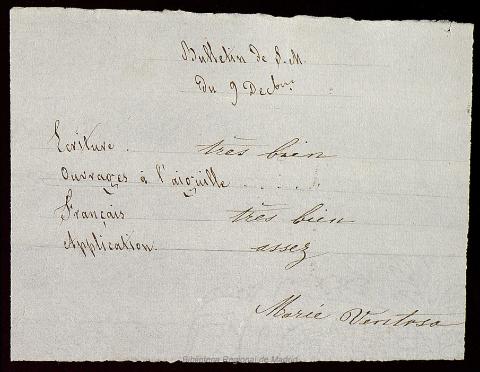 Bulletin de S. M.
Du 9 Decbre
Ecriture . très bien
Ouvrages à l'aiguille . . . . .
Français très bien
Application. assez
Marie Ventosa
Biblioteca Regional de Madrid